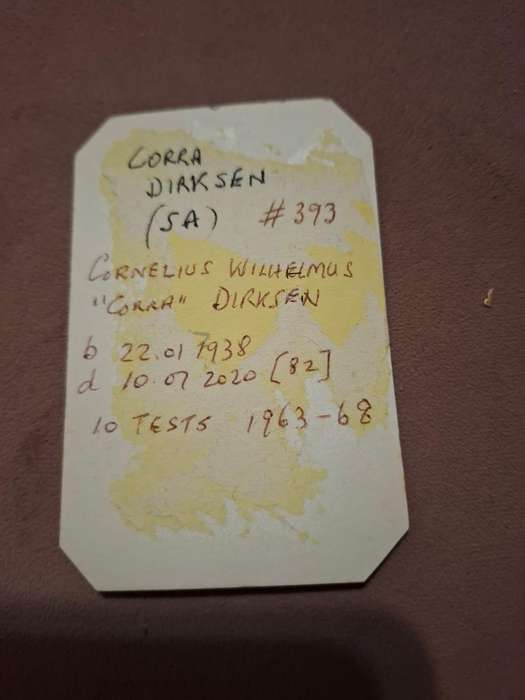 CORRA
DIRKSEN
(SA) #393
CORNELIUS WILHELMUS
"CORRA" DIRKSEN
b 22.01 1938
d 10.07 2020 [82]
10 TESTS 1963-68